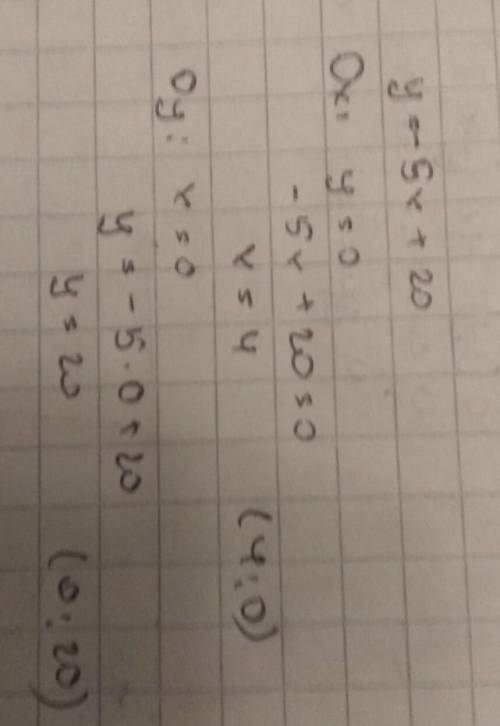 y = -5x + 20
Ox: y = 0
-5x + 20 = 0
x = 4 (4;0)
Oy: x = 0
y = -5·0 + 20
y = 20 (0;20)